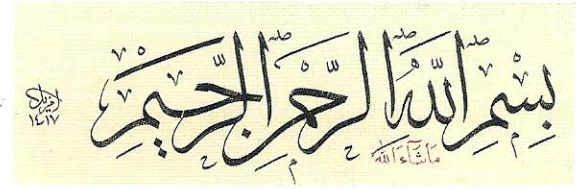 بِسْمِ اللَّهِ الرَّحْمَنِ الرَّحِيمِ
مَا شَاءَ اللَّه
١٤١٧